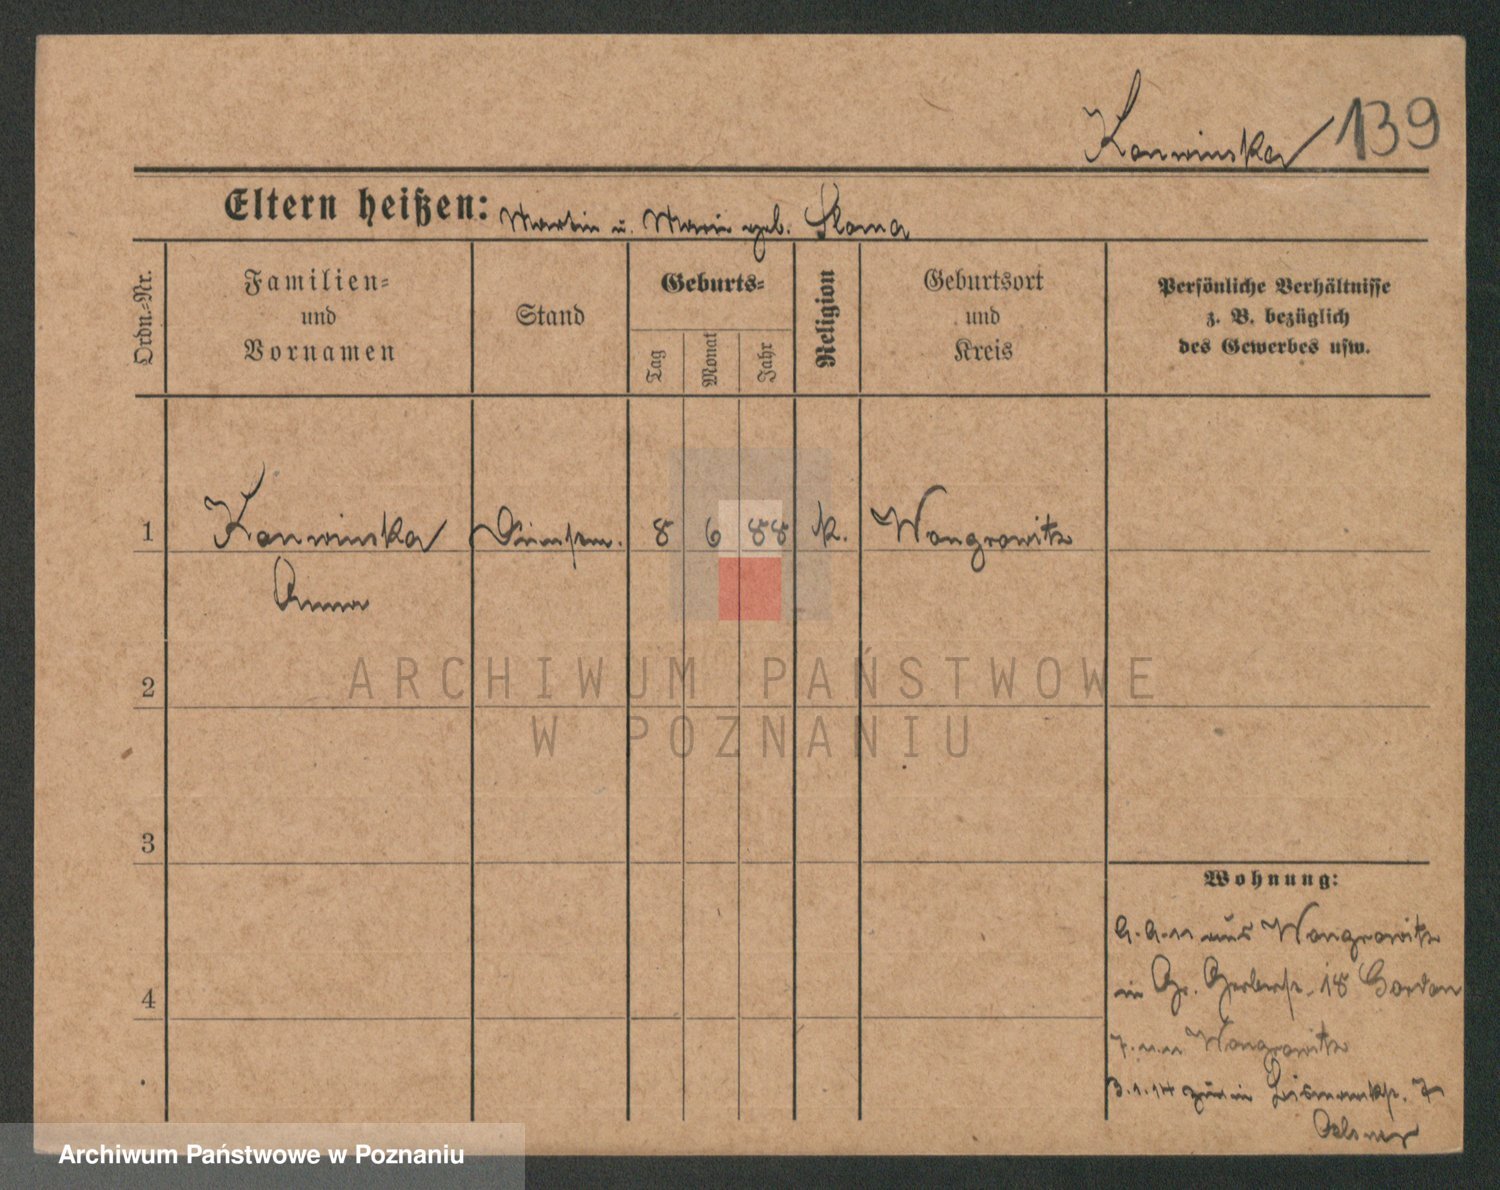 Konwinska 139
Eltern heißen: Martin u. Marie geb. Sloma
Ordn.-Nr.
Familien-
und
Vornamen
Stand
Geburts-
Tag
Monat
Jahr
Religion
Geburtsort
und
Kreis
Persönliche Verhältnisse
z. B. bezüglich
des Gewerbes usw.
1 Konwinska 8 6 88 k. Wongrowitz
Anna
2
3
4
Wohnung:
aus Wongrowitz
in Gr. Gerberstr. 18 Gordon
Wongrowitz
3.1.14 zur. in Bismarckstr. 7
ARCHIWUM PAŃSTWOWE
W POZNANIU
Archiwum Państwowe w Poznaniu